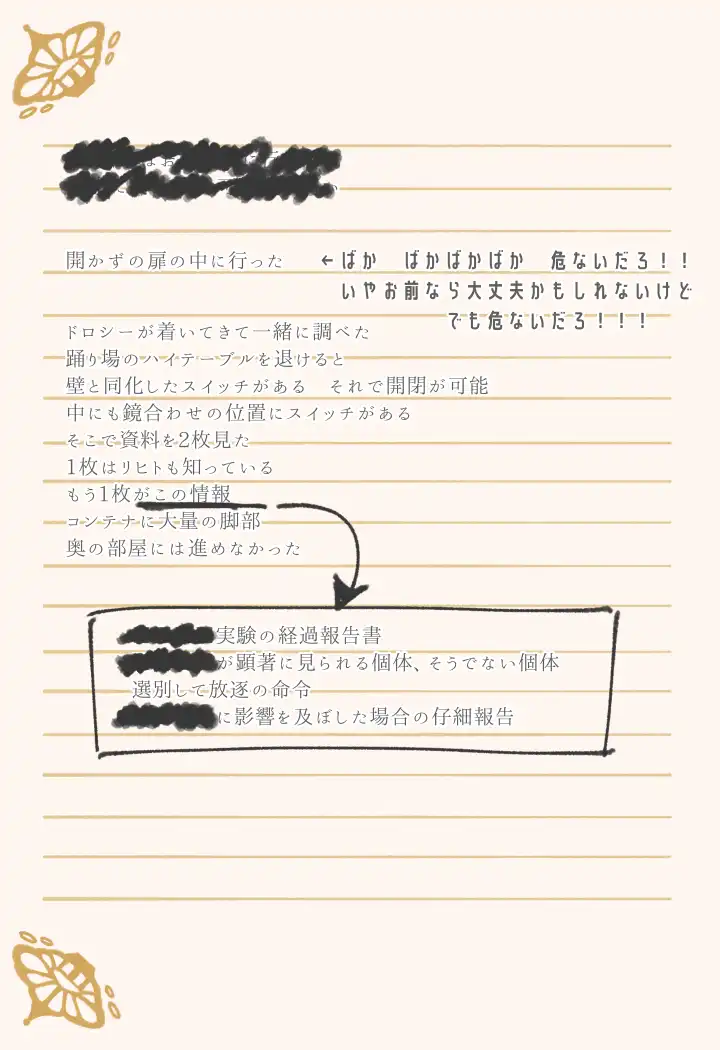 開かずの扉の中に行った ←ばか ばかばかばか 危ないだろ！！
いやお前なら大丈夫かもしれないけど
でも危ないだろ！！！
ドロシーが着いてきて一緒に調べた
踊り場のハイテーブルを退けると
壁と同化したスイッチがある それで開閉が可能
中にも鏡合わせの位置にスイッチがある
そこで資料を2枚見た
1枚はリヒトも知っている
もう1枚がこの情報
コンテナに大量の脚部
奥の部屋には進めなかった
実験の経過報告書
が顕著に見られる個体、そうでない個体
選別して放逐の命令
に影響を及ぼした場合の仔細報告